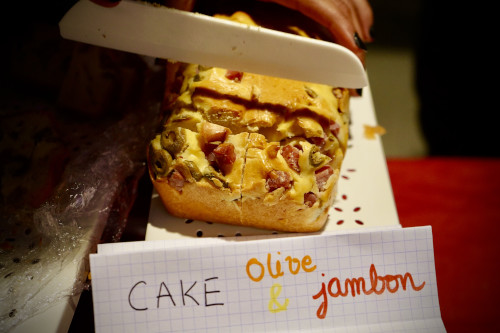 CAKE olive & jambon